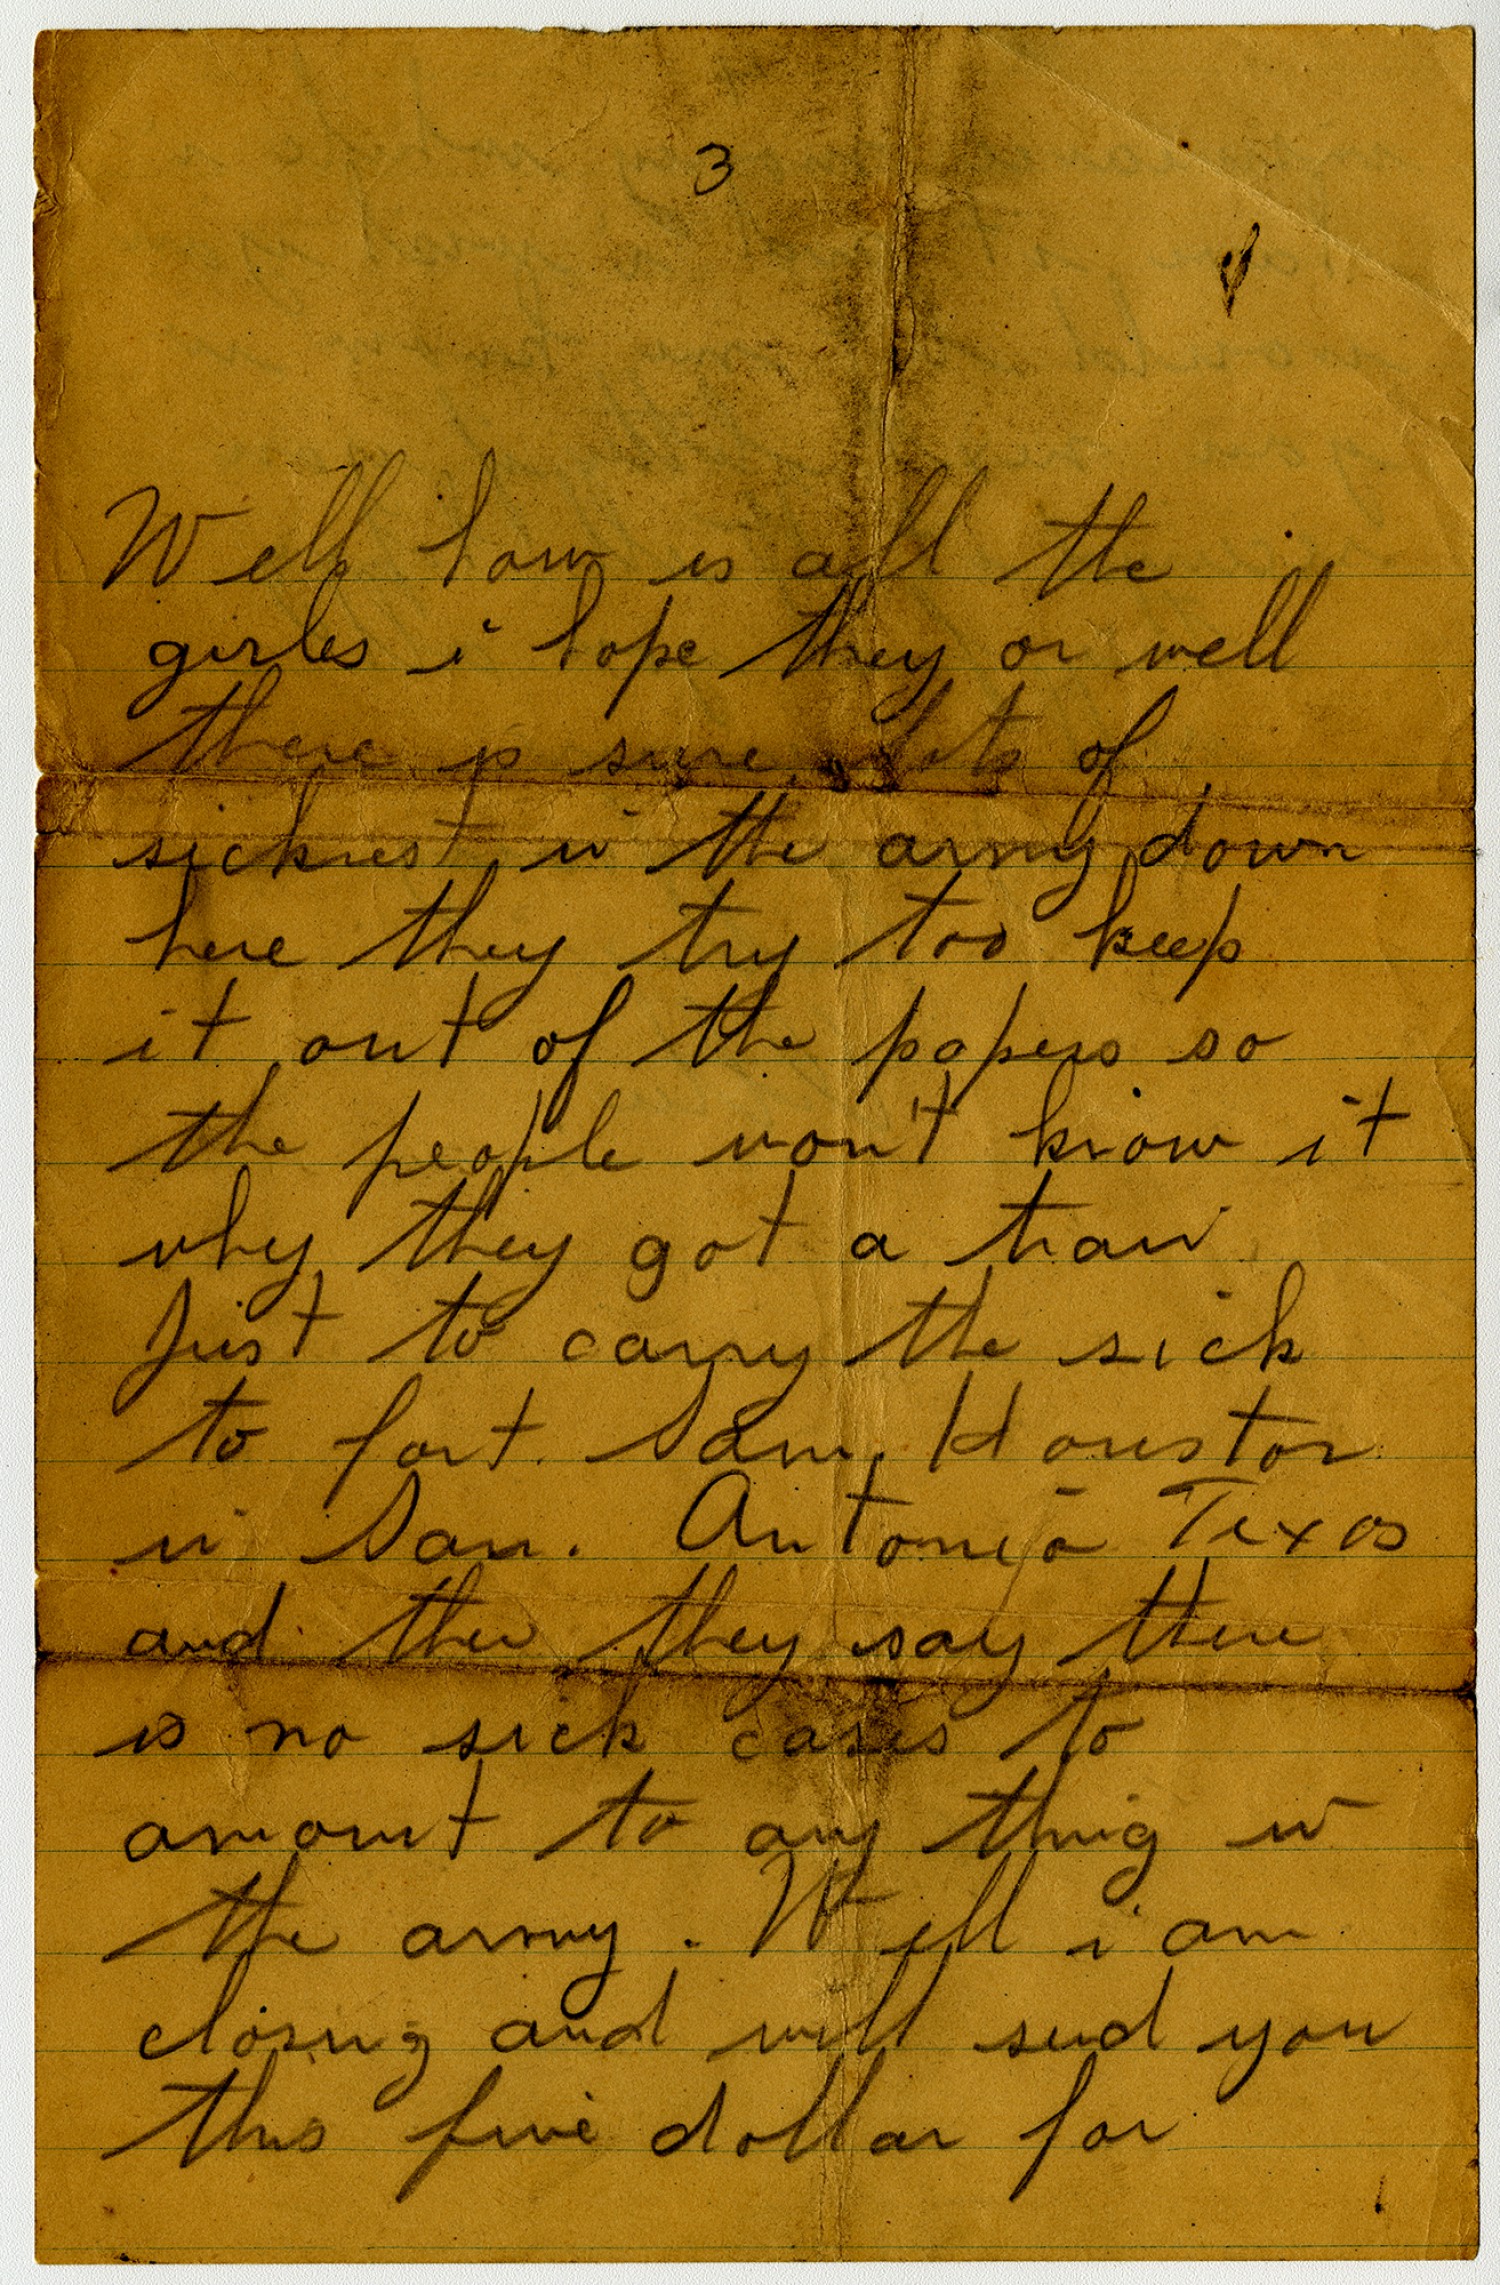 3
Well how is all the
girles i hope they or well
there is sure lots of
sicknest in the army down
here they try too keep
it out of the papers so
the people won't know it
why they got a train
Just to carry the sick
to fort. Sam. Houston
in San. Antonio Texas
and then they say there
is no sick cases to
amount to any thing in
the army. Well i am
closing and will send you
this five dollar for